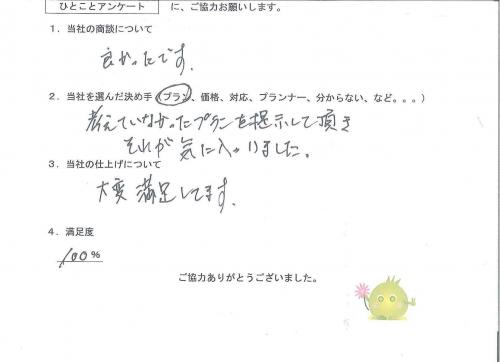 ひとことアンケート に、ご協力お願いします。
1．当社の商談について
良かったです.
2．当社を選んだ決め手（プラン、価格、対応、プランナー、分からない、など。。。）
考えていなかったプランを提示して頂き
それが気に入りました。
3．当社の仕上げについて
大変満足してます.
4．満足度
100％
ご協力ありがとうございました。